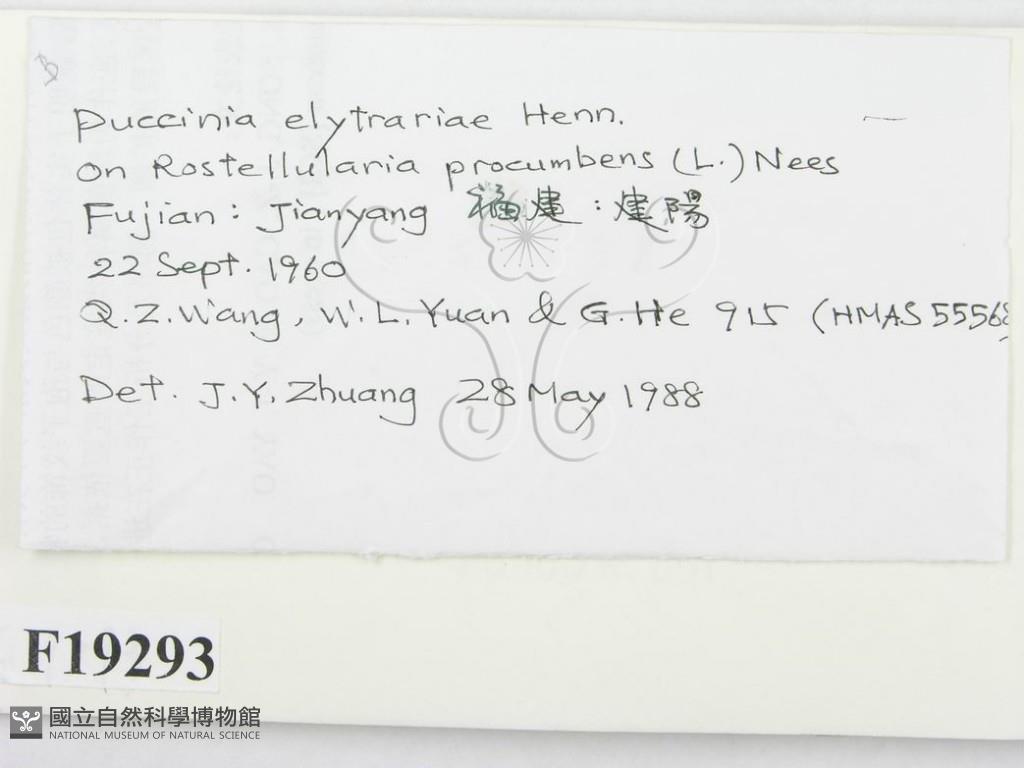 Puccinia elytrariae Henn.
on Rostellularia procumbens (L.) Nees
Fujian: Jianyang 福建:建陽
22 Sept. 1960
Q.Z.Wang, W.L.Yuan & G.He 915 (HMAS 55568)
Det. J.Y.Zhuang 28 May 1988
F19293
國立自然科學博物館
NATIONAL MUSEUM OF NATURAL SCIENCE